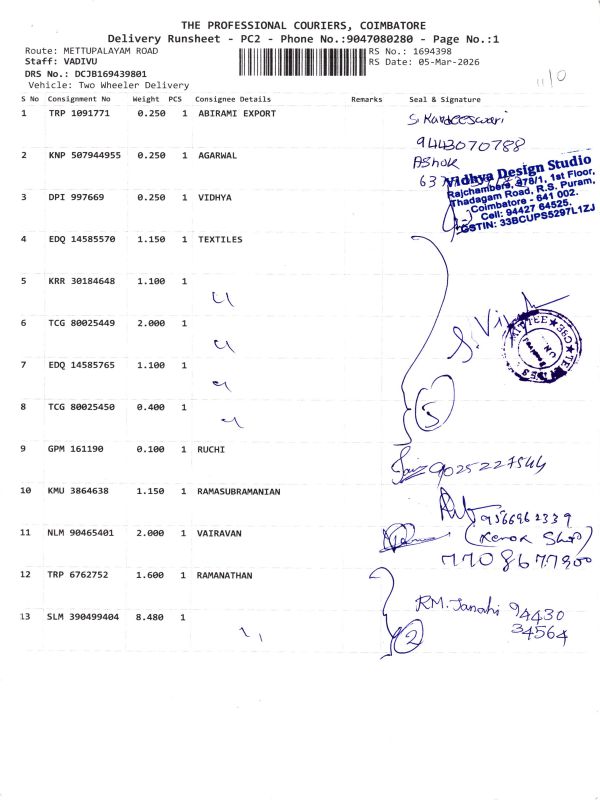 THE PROFESSIONAL COURIERS, COIMBATORE
Delivery Runsheet - PC2 - Phone No.:9047080280 - Page No.:1
Route: METTUPALAYAM ROAD RS No.: 1694398
Staff: VADIVU RS Date: 05-Mar-2026
DRS No.: DCJB169439801
Vehicle: Two Wheeler Delivery
S No Consignment No Weight PCS Consignee Details Remarks Seal & Signature
1 TRP 1091771 0.250 1 ABIRAMI EXPORT
9443070788
2 KNP 507944955 0.250 1 AGARWAL Ashok
63
Vidhya Design Studio
Rajchambers, 978/1, 1st Floor,
Thadagam Road, R.S. Puram,
Coimbatore - 641 002.
Cell: 94427 64525.
GSTIN: 33BCUPS5297L1ZJ
3 DPI 997669 0.250 1 VIDHYA
4 EDQ 14585570 1.150 1 TEXTILES
5 KRR 30184648 1.100 1
6 TCG 80025449 2.000 1
7 EDQ 14585765 1.100 1
8 TCG 80025450 0.400 1
5
9 GPM 161190 0.100 1 RUCHI
9025227544
10 KMU 3864638 1.150 1 RAMASUBRAMANIAN
9566962339
11 NLM 90465401 2.000 1 VAIRAVAN
(Xerox Shop)
7708677900
12 TRP 6762752 1.600 1 RAMANATHAN
RM. Janaki 94430
34564
13 SLM 390499404 8.480 1
2